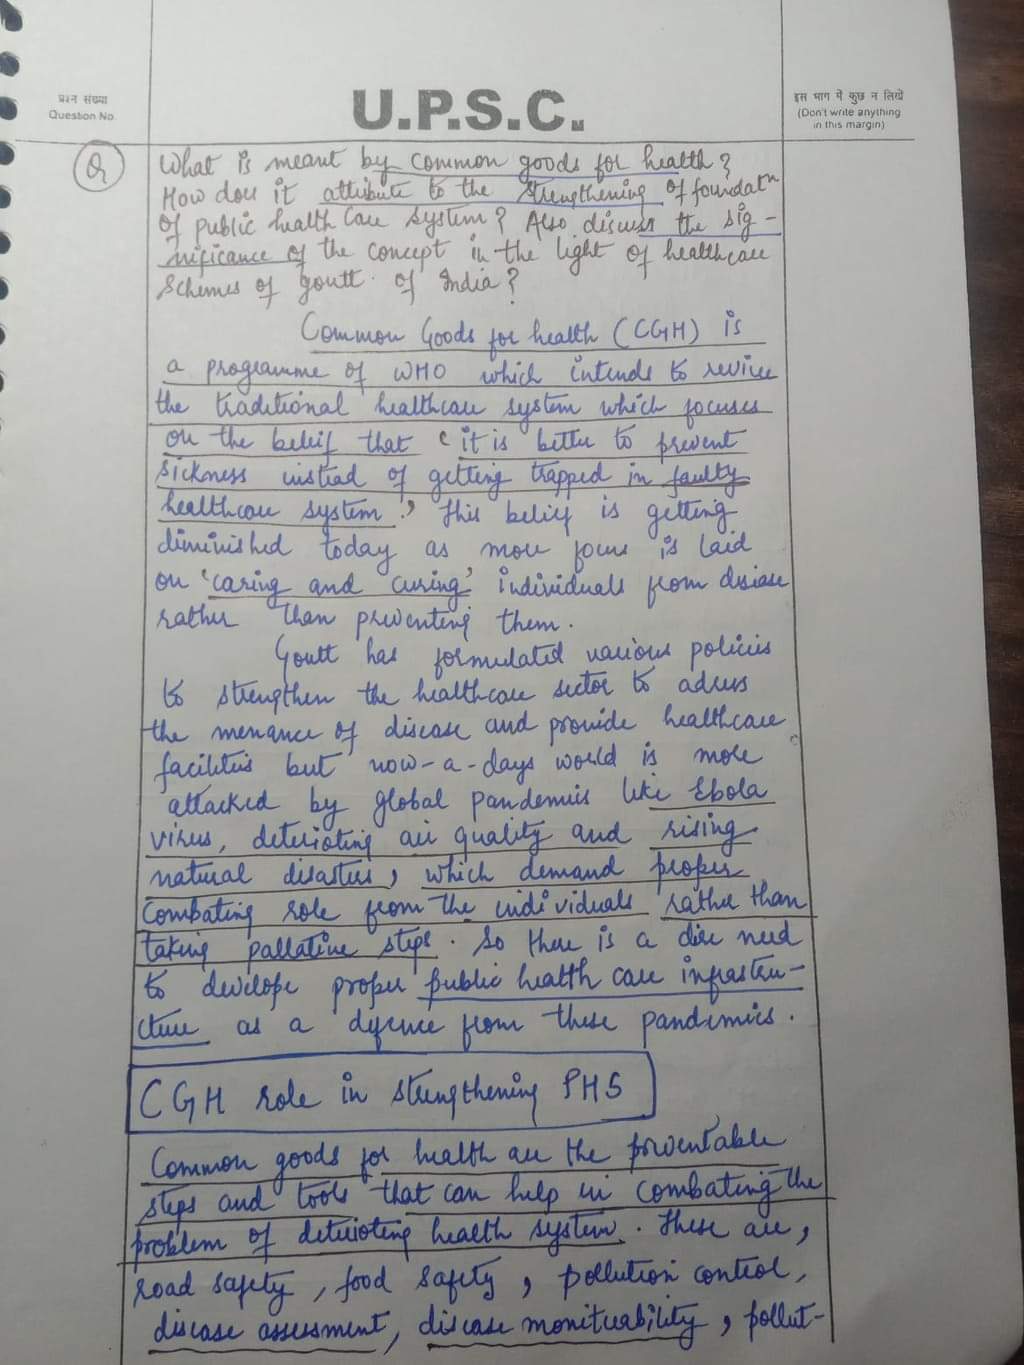 प्रश्न संख्या
Question No.
U.P.S.C.
इस भाग में कुछ न लिखें
(Don't write anything
in this margin)
Q
What is meant by common goods for health?
How does it attribute to the strengthening of foundatn
of public health care system? Also discuss the sig-
nificance of the concept in the light of healthcare
schemes of govtt. of India?
Common Goods for health (CGH) is
a programme of WHO which intends to revive
the traditional healthcare system which focuses
on the belief that "it is better to prevent
sickness instead of getting trapped in faulty
healthcare system". This belief is getting
diminished today as more focus is laid
on 'caring and curing' individuals from disease
rather than preventing them.
Govtt has formulated various policies
to strengthen the healthcare sector to adress
the menance of disease and provide healthcare
facilities but now-a-days world is more
attacked by global pandemics like Ebola
virus, deterioting air quality and rising
natural disasters, which demand proper
combating role from the individuals rather than
taking pallative steps. So there is a dire need
to develope proper public health care infrastru-
cture as a defence from these pandemics.
CGH role in strengthening PHS
Common goods for health are the preventable
steps and tools that can help in combating the
problem of deterioting health system. These are,
road safety, food safety, pollution control,
disease assessment, disease moniterability, pollut-